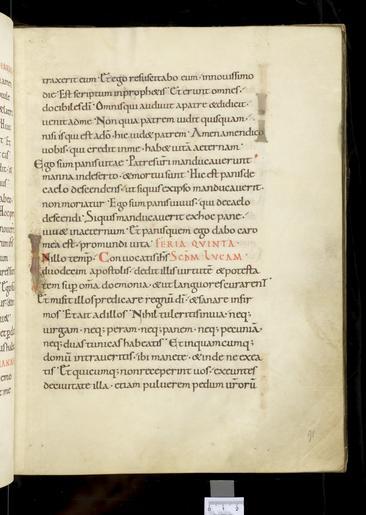 traxerit eum · Et ego resuscitabo eum · innovissimo
die · Est scriptum inprophetis · Et erunt omnes
docibiles dī · Omnis qui audivit apatre & didicit
venit adme · Non quia patrem vidit quisquam ·
nisi is qui est adō · hic vidit patrem · Amen amen dico
vobis · qui credit inme · hab& vitā aeternam ·
Ego sum panis vitae · Patres urī manducaverunt
manna indeserto · & mortui sunt · Hic est panis de
caelo descendens · ut siquis ex ipso manducaverit ·
non moriatur · Ego sum panis vivus · qui de caelo
descendi · Siquis manducaverit ex hoc pane ·
viv& inaeternum · Et panis quem ego dabo caro
mea est · pro mundi vita · FERIA QUINTA ·
In illo temp̄ · Convocatis ihs̄ SCDM LUCAM ·
duodecim apostolis · dedit illis virtutē & potesta
tem sup omā daemonia · & ut languores curarent
Et misit illos predicare regnū dī · & sanare infir
mos · Et ait ad illos · Nihil tuleritis in via · neq;
virgam · neq; peram · neq; panem · neq; pecuniā ·
neq; duas tunicas habeatis · Et in quamcumq;
domū intraveritis · ibi manete · & inde ne exea
tis · Et quicumq; non receperint vos · exeuntes
de civitate illa · etiam pulverem pedum vrorū